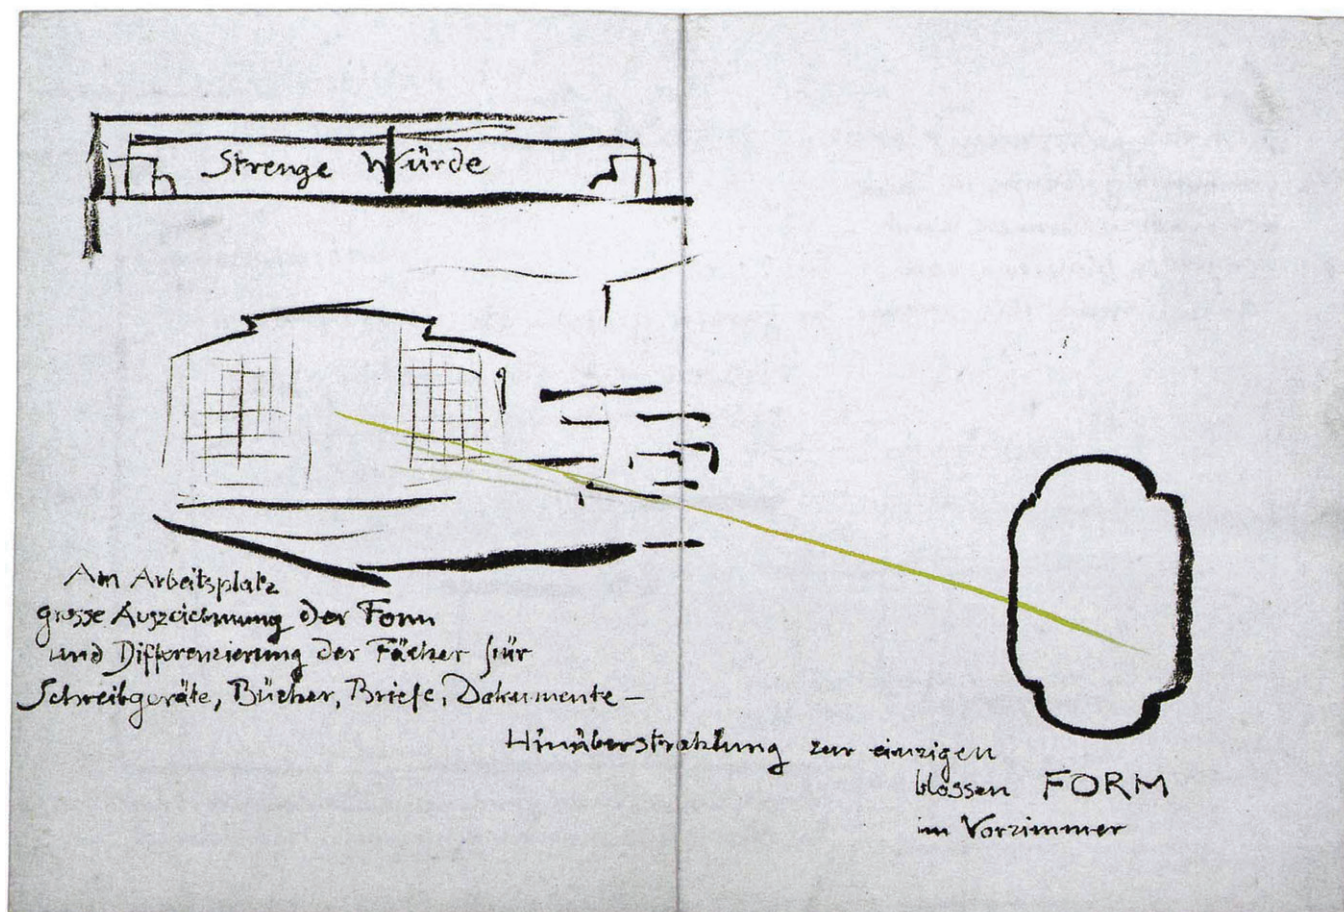 Strenge Würde
Am Arbeitsplatz
grosse Auszeichnung der Form
und Differenzierung der Fächer für
Schreibgeräte, Bücher, Briefe, Dokumente –
Hinüberstrahlung zur einzigen
blossen FORM
im Vorzimmer